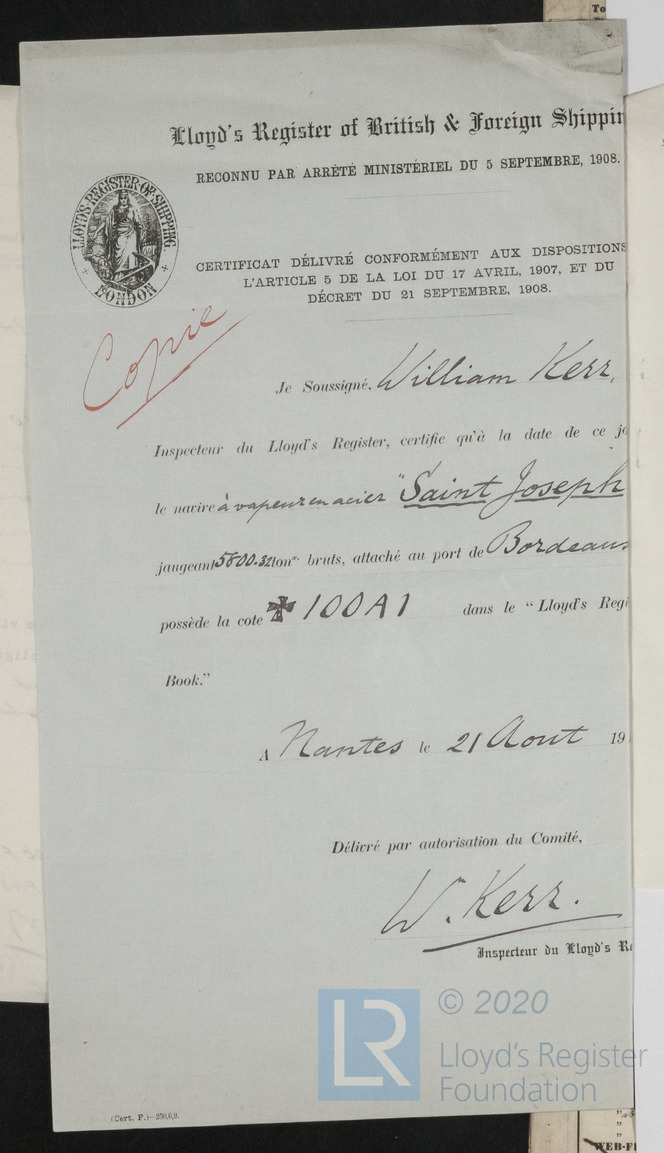 To
Lloyd's Register of British & Foreign Shippin
RECONNU PAR ARRÊTÉ MINISTÉRIEL DU 5 SEPTEMBRE, 1908.
LLOYD'S REGISTER OF SHIPPING
LONDON
CERTIFICAT DÉLIVRÉ CONFORMÉMENT AUX DISPOSITIONS
L'ARTICLE 5 DE LA LOI DU 17 AVRIL, 1907, ET DU
DÉCRET DU 21 SEPTEMBRE, 1908.
Copie
Je Soussigné, William Kerr,
Inspecteur du Lloyd's Register, certifie qu'à la date de ce jo
le navire à vapeur en acier "Saint Joseph
jaugeant 5600.32 tonx bruts, attaché au port de Bordeaux
possède la cote ✠ 100A1 dans le "Lloyd's Regi
Book."
A Nantes le 21 Aout 19
Délivré par autorisation du Comité,
W. Kerr.
Inspecteur du Lloyd's Re
LR © 2020
Lloyd's Register
Foundation
(Cert. F.)—250,6,9.
WEB-F